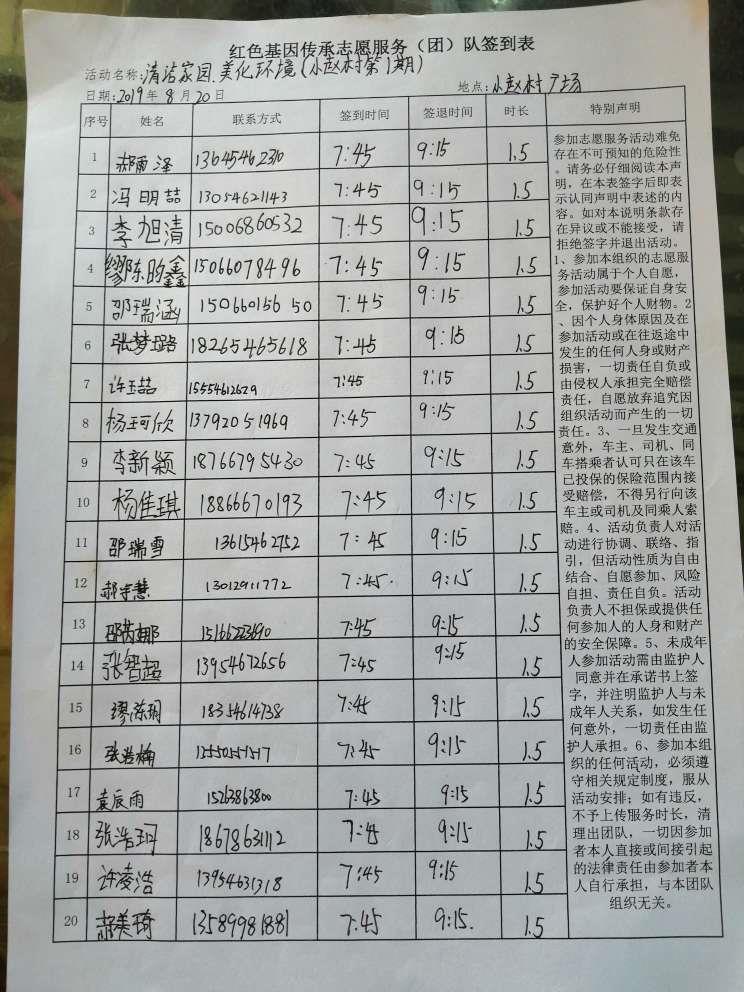 红色基因传承志愿服务（团）队签到表
活动名称：清洁家园.美化环境（小赵村第1期）
日期：2019年8月20日 地点：小赵村广场
序号 姓名 联系方式 签到时间 签退时间 时长 特别声明
1 郝雨泽 13645462310 7:45 9:15 1.5
2 冯明喆 13054621143 7:45 9:15 1.5
3 李旭清 15006860532 7:45 9:15 1.5
4 缪陈昀鑫 15066078496 7:45 9:15 1.5
5 邵瑞涵 15066015650 7:45 9:15 1.5
6 张梦璐 18265465618 7:45 9:15 1.5
7 许玉喆 15554612629 7:45 9:15 1.5
8 杨珂欣 13792051969 7:45 9:15 1.5
9 李新颖 18766795430 7:45 9:15 1.5
10 杨佳琪 18866670193 7:45 9:15 1.5
11 邵瑞雪 13615462752 7:45 9:15 1.5
12 郝宇慧 13012911772 7:45. 9:15 1.5
13 7:45 9:15 1.5
14 张智超 13954672656 7:45 9:15 1.5
15 18354614738 7:45 9:15 1.5
16 张浩楠 7:45 9:15 1.5
17 袁辰雨 15263863800 7:45 9:15 1.5
18 张浩珂 18678631112 7:45 9:15 1.5
19 许凌浩 13954631318 7:45 9:15 1.5
20 郝美琦 13589981881 7:45 9:15. 1.5
参加志愿服务活动难免
存在不可预知的危险性
。请务必仔细阅读本声
明，在本表签字后即表
示认同声明中表述的内
容。如对本说明条款存
在异议或不能接受，请
拒绝签字并退出活动。
1、参加本组织的志愿服
务活动属于个人自愿，
参加活动要保证自身安
全，保护好个人财物。2
、因个人身体原因及在
参加活动或在往返途中
发生的任何人身或财产
损害，一切责任自负或
由侵权人承担完全赔偿
责任，自愿放弃追究因
组织活动而产生的一切
责任。3、一旦发生交通
意外，车主、司机、同
车搭乘者认可只在该车
已投保的保险范围内接
受赔偿，不得另行向该
车主或司机及同乘人索
赔。4、活动负责人对活
动进行协调、联络、指
引，但活动性质为自由
结合、自愿参加、风险
自担、责任自负。活动
负责人不担保或提供任
何参加人的人身和财产
的安全保障。5、未成年
人参加活动需由监护人
同意并在承诺书上签
字，并注明监护人与未
成年人关系，如发生任
何意外，一切责任由监
护人承担。6、参加本组
织的任何活动，必须遵
守相关规定制度，服从
活动安排；如有违反，
不予上传服务时长，清
理出团队，一切因参加
者本人直接或间接引起
的法律责任由参加者本
人自行承担，与本团队
组织无关。